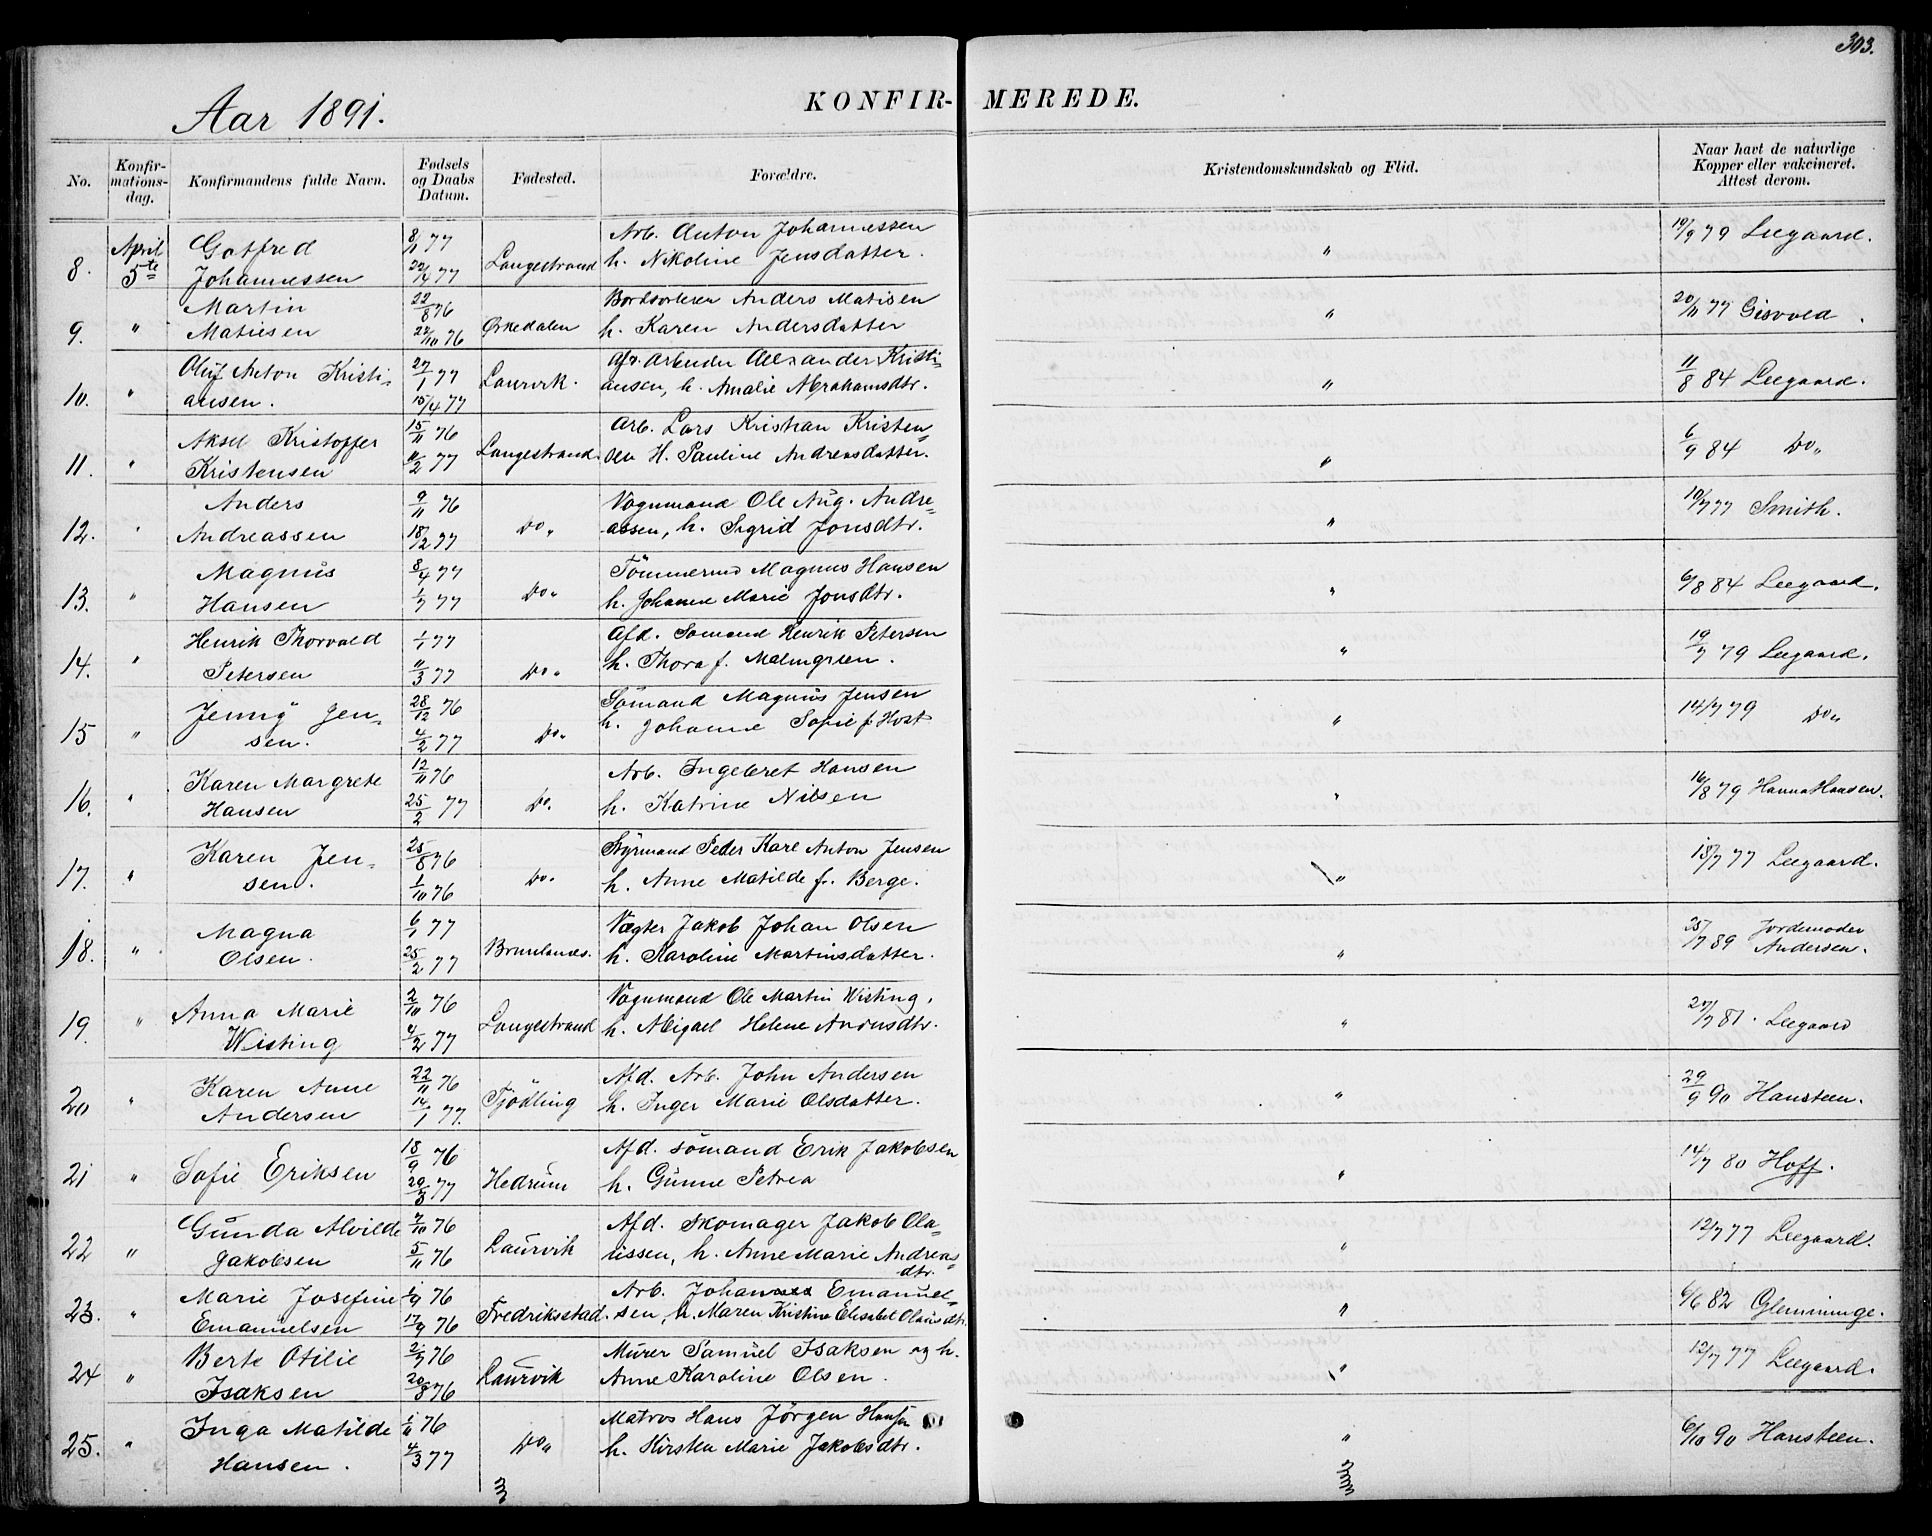 303.
Aar 1891.
KONFIR- MEREDE.
No. Konfir-mations-dag. Konfirmandens fulde Navn. Fødsels og Daabs Datum. Fødested. Forældre. Kristendomskundskab og Flid. Naar havt de naturlige Kopper eller vakcineret. Attest derom.
April Gotfred 8/11 77 Arb. Anton Johannessen 19/9 79 Leegaard.
8. 5te Johannessen 22/4 77 Langestrand h. Nikoline Jensdatter. "
Martin 22/8 76 Bordsorterer Anders Matisen 20/11 77 Gisvold.
9. " Matiesen 22/10 76 Ørkedalen h. Karen Andersdatter "
Oluf Anton Kristi- 27/1 77 Afr. Arbeider Alexander Kristi- 11/8 84 Leegaard.
10. " ansen. 15/4 77 Laurvik. ansen, h. Amalie Abrahamsdtr. "
Aksel Kristoffer 15/11 76 Arb. Lars Kristian Kristen= 6/9 84 Do„
11. " Kristensen 11/2 77 Langestrand. sen H. Pauline Andreasdatter. "
Anders 9/11 76 Vognmand Ole Aug. Andre= 10/7 77 Smith.
12. " Andreassen 18/2 77 Do„ assen, h. Sigrid Jonsdtr. "
Magnus 8/4 77 Tömmermd Magnus Hansen 6/8 84 Leegaard.
13. " Hansen 1/7 77 Do„ h. Johanne Marie Jonsdtr. "
Henrik Thorvald 1/1 77 Afd. Sömand Henrik Petersen 19/7 79 Leegaard.
14. " Petersen 11/3 77 Do„ h. Thora f. Malmgreen. "
Jenny Jen= 28/12 76 Sömand Magnus Jensen 14/7 79 Do„
15 " sen. 4/2 77 Do„ h. Johanne Sofie f. Host "
Karen Margrete 12/11 76 Arb. Ingebret Hansen 16/8 79 Hanna Hansen.
16. " Hansen 25/2 77 Do. h. Katrine Nilsen "
Karen Jen= 25/8 76 Styrmand Peder Karl Anton Jensen 18/7 77 Leegaard.
17. " sen. 1/10 76 Do. h. Anne Matilde f. Berge. "
Magna 6/1 77 Vægter Jakob Johan Olsen 25/7 89 Jordemoder
18. " Olsen. 25/2 77 Brunlanes. h. Karoline Martinsdatter. " Andersen.
Anna Marie 2/10 76 Vognmand Ole Martin Wisting, 27/7 81. Leegaard
19. " Wisting 4/2 77 Langestrand h. Abigael Helene Aronsdtr. "
Karen Anne 22/11 76 Afd. Arb. John Andersen 29/9 90 Hansteen.
20 " Andersen 14/1 77. Tjödling h. Inger Marie Olsdatter. "
18/9 76 Afd. sömand Erik Jakobsen 14/7 80 Hoff.
21 " Sofie Eriksen 29/3 77 Hedrum h. Gunne Petrea "
Gunda Alvilde 7/10 76 Afd. Skomager Jakob Ola= 12/7 77 Leegaard.
22 " Jakobsen 5/11 76 Laurvik ussen, h. Anne Marie Andreas= "
dtr.
Marie Josefine 1/9 76 Arb. Johannes Emanuel= 6/6 82 Glemminge.
23. " Emanuelsen 17/9 76 Fredriksstad. sen, h. Maren Kristine Elisabet Olausdtr. "
Berte Otilie 2/7 76 Murer Samuel Isaksen og h. 12/7 77 Leegaard.
24 " Isaksen 20/8 76 Laurvik Anne Karoline Olsen. "
Inga Matilde 1/11 76 Matros Hans Jörgen Hansen 6/10 90 Hansteen.
25. " Hansen. 4/3 77 Do„ h. Kirsten Marie Jakobsdtr. "